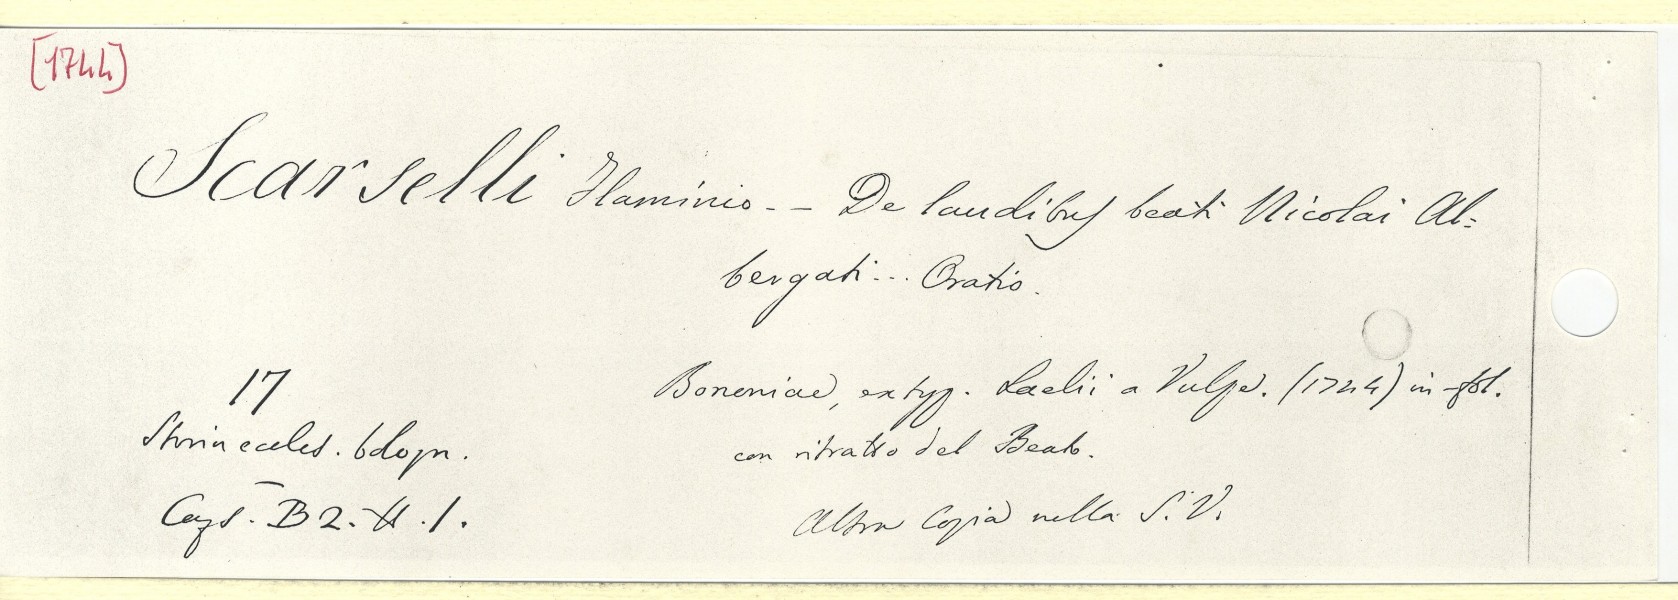 [1744]
Scarselli Flaminio -- De laudibus beati Nicolai Al=
bergati... Oratio.
17
Bononiae, ex typ. Laelii a Vulpe. (1744) in-fol.
Storia eccles. bologn.
con ritratto del Beato.
Caps. B2. H. 1.
Altra Copia nella S. V.